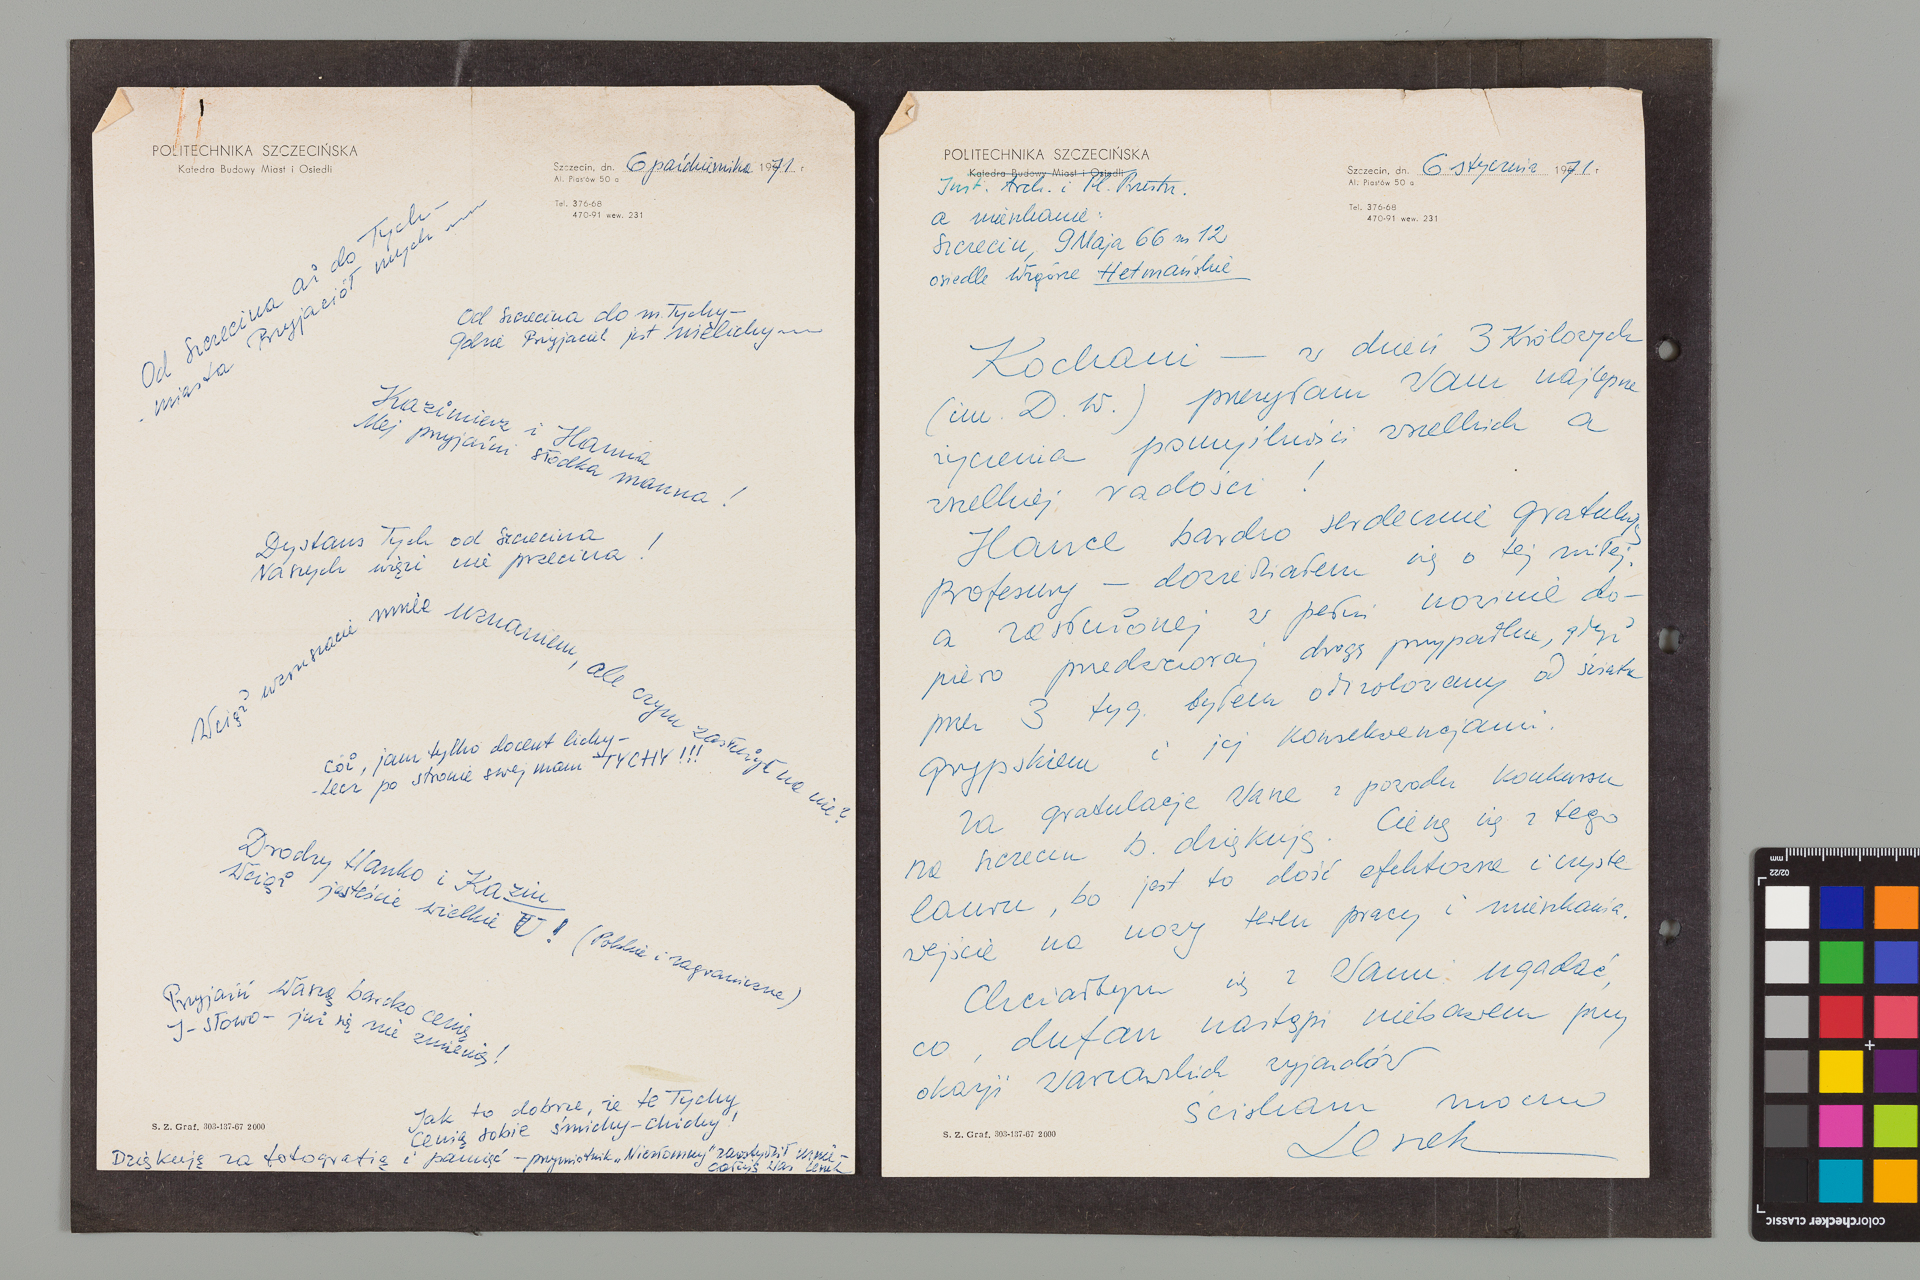 POLITECHNIKA SZCZECIŃSKA
Katedra Budowy Miast i Osiedli
Szczecin, dn. 6 października 1971 r
Al. Piastów 50 a
Tel. 376-68
470-91 wew. 231
Od Szczecina aż do Tych –
miasta Przyjaciół mych
Od Szczecina do m. Tychy –
Gdzie Przyjaciel jest nielichy
Kazimierz i Hannia
Mej przyjaźni słodka manna!
Dystans Tych od Szczecina
Naszych więzi nie przecina!
Wciąż wzruszacie mnie uznaniem, ale czym zasłużył na nie?
Cóż, jam tylko docent lichy –
Lecz po stronie swej mam TYCHY!!!
Drodzy Hanko i Kaziu
Wciąż jesteście wielkie U! (Polskie i zagraniczne)
Przyjaźń Waszą bardzo cenię
I – słowo – już się nie zmienię!
Jak to dobrze, że te Tychy
Cenią sobie śmichy-chichy!
S. Z. Graf. 303-137-67 2000
Dziękuję za fotografię i pamięć – przymiotnik „Niezłomny" zawstydził mnie –
całuję Was Leszek
POLITECHNIKA SZCZECIŃSKA
Katedra Budowy Miast i Osiedli
Inst. Arch. i Pl. Przestrz.
a mieszkanie:
Szczecin, 9 Maja 66 m 12
osiedle Wzgórze Hetmańskie
Szczecin, dn. 6 stycznia 1971 r
Al. Piastów 50 a
Tel. 376-68
470-91 wew. 231
Kochani – w dzień 3 Królowych
(im. D. W.) przesyłam Wam najlepsze
życzenia pomyślności wszelkich a
wszelkiej radości!
Hance bardzo serdecznie gratuluję
Profesury – dowiedziałem się o tej miłej
a zasłużonej w pełni nowinie do-
piero przedwczoraj drogą przypadku, gdyż
przez 3 tyg. byłem odizolowany od świata
grypskiem i jej konsekwencjami.
Za gratulacje Wasze z powodu konkursu
na Szczecin b. dziękuję. Cieszę się z tego
lauru, bo jest to dość efektowne i czyste
wejście na nowy teren pracy i mieszkania.
Chciałbym się z Wami ugadać,
co, dufam nastąpi niebawem przy
okazji Warszawskich wyjazdów
Ściskam mocno
Leszek
S. Z. Graf. 303-137-67 2000
mm
02/22
colorchecker CLASSIC